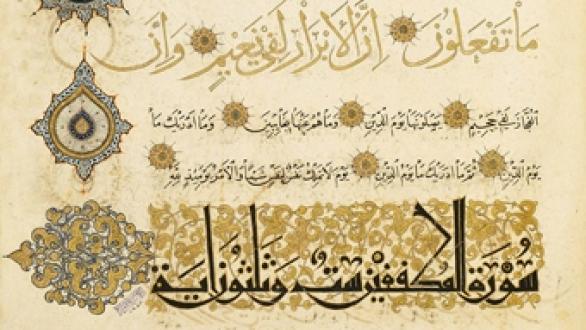 مَا تَفْعَلُونَ اِنَّ الْاَبْرَارَ لَفِي نَعِيمٍ وَاِنَّ
الْفُجَّارَ لَفِي جَحِيمٍ يَصْلَوْنَهَا يَوْمَ الدِّينِ وَمَا هُمْ عَنْهَا بِغَائِبِينَ وَمَا اَدْرٰيكَ مَا
يَوْمُ الدِّينِ ثُمَّ مَا اَدْرٰيكَ مَا يَوْمُ الدِّينِ يَوْمَ لَا تَمْلِكُ نَفْسٌ لِنَفْسٍ شَيْئًا وَالْاَمْرُ يَوْمَئِذٍ لِلّٰهِ
سورة المطففين ست وثلثون اية